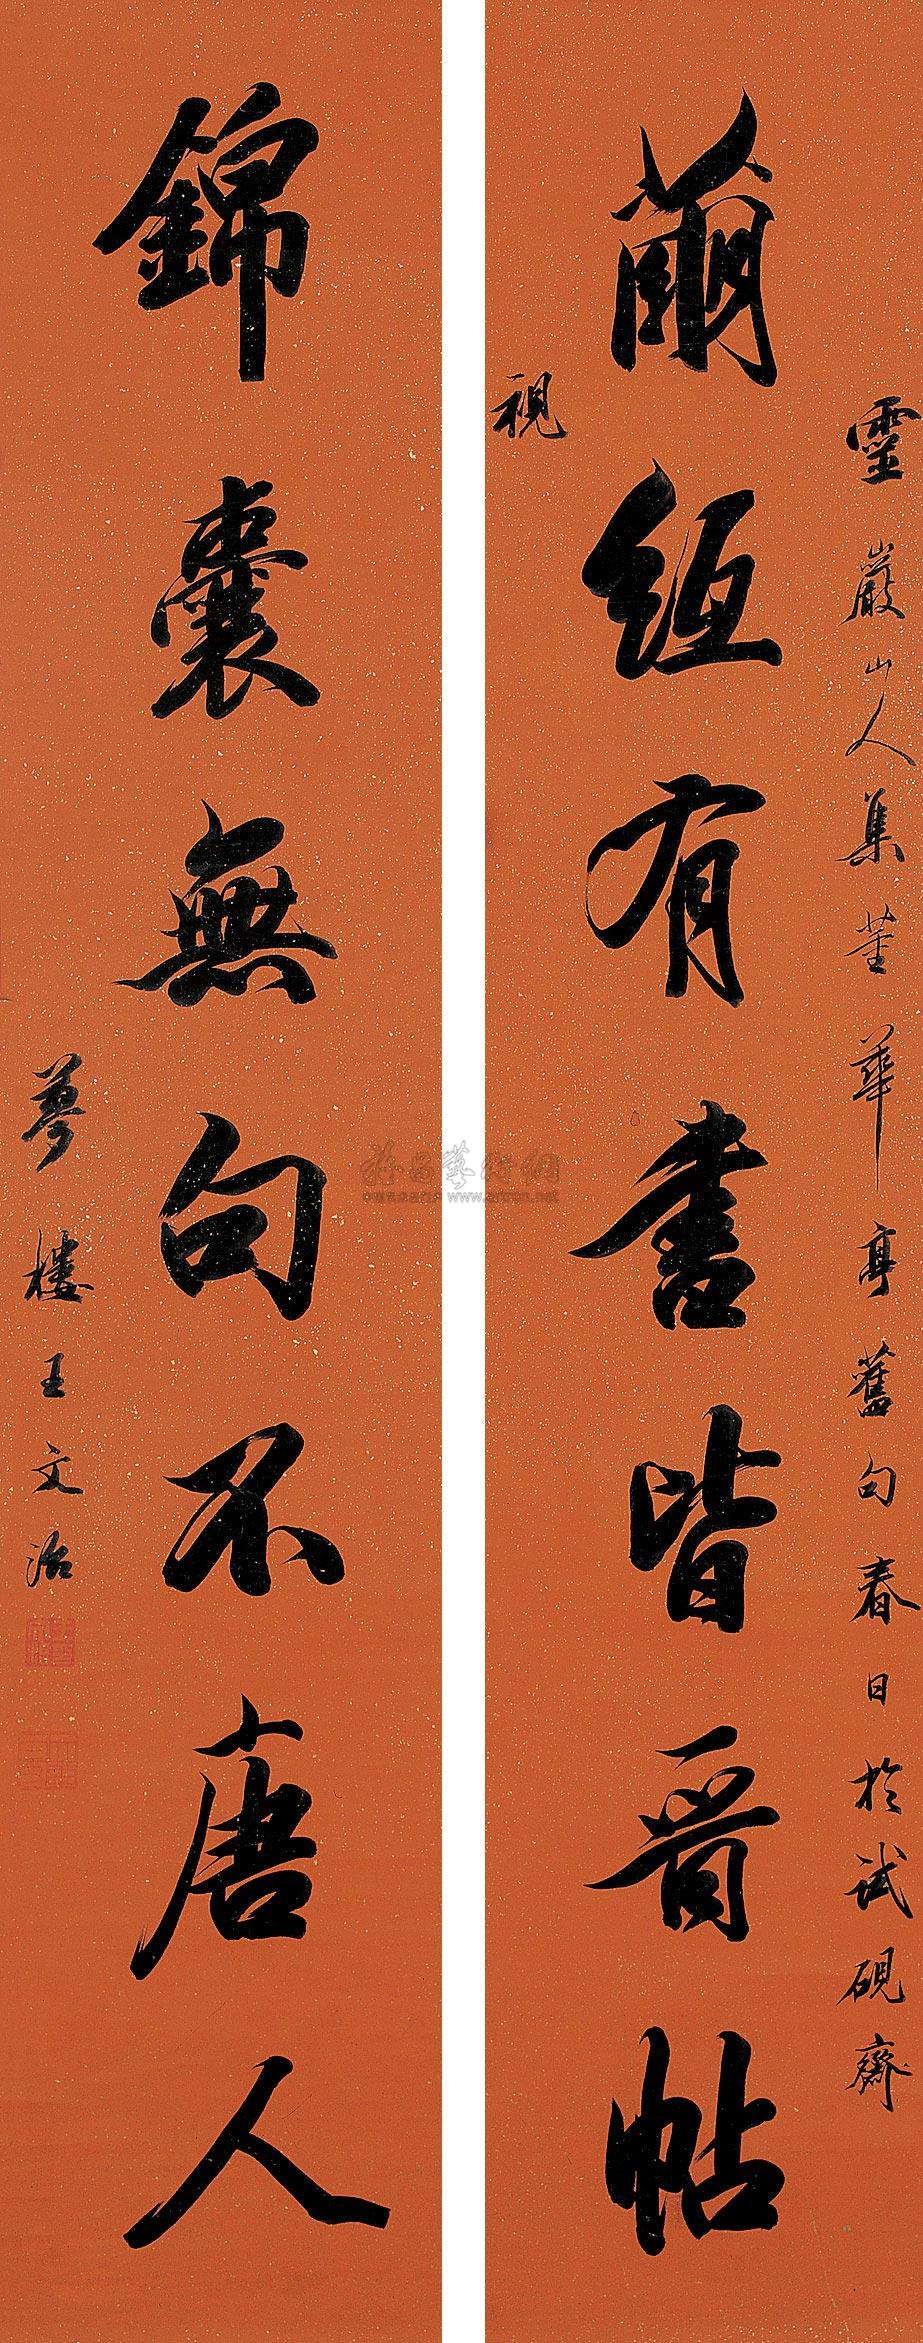 靈巖山人集董華亭舊句春日於試硯齋
繭紙有書皆晉帖
視
錦囊無句不唐人
夢樓王文治
雅昌藝術網
www.artron.net